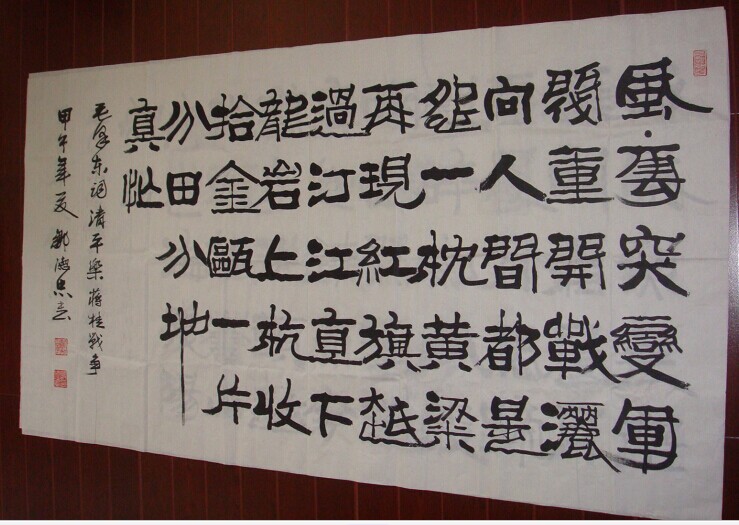 風雲突變軍
閥重開戰灑
向人間都是
怨一枕黃粱
再現紅旗越
過汀江直下
龍岩上杭收
拾金甌一片
分田分地
真忙
毛澤東詞清平樂蔣桂戰争
甲午年夏